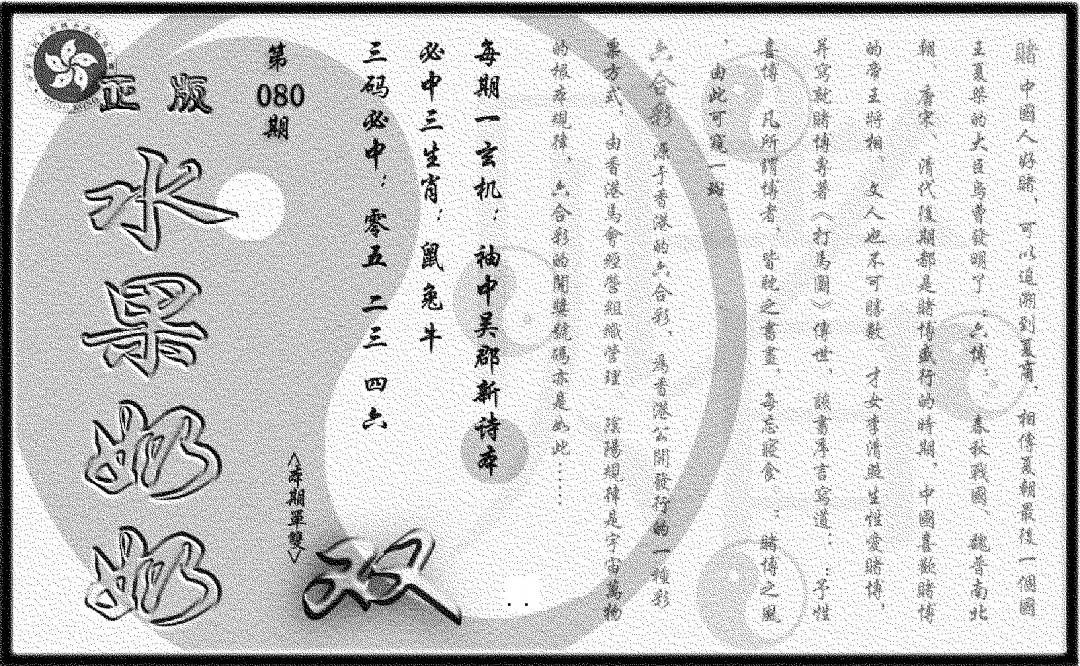 賭 中國人好賭，可以追溯到夏商，相傳夏朝最後一個國
王夏桀的大臣烏曹發明了：六博； 春秋戰國、魏晉南北
朝、唐宋、清代後期都是賭博盛行的時期，中國喜歡賭博
的帝王將相 文人也不可勝數 才女李清照生性愛賭博，
并寫就賭博專著〈打馬圖〉傳世，該書序言寫道：：予性
喜博，凡所謂博者，皆耽之晝晝，每忘寢食 ：賭博之風
，由此可窺一斑。
六合彩 源于香港的六合彩，為香港公開發行的一種彩
票方式，由香港馬會經營組織管理 陰陽規律是宇宙萬物
的根本規律，六合彩的開獎號碼亦是如此……
每期一玄机：袖中吴郡新诗本
必中三生肖：鼠兔牛
三码必中：零五 二三 四六
第
080
期
〈本期單雙〉
双
正版
水果奶奶